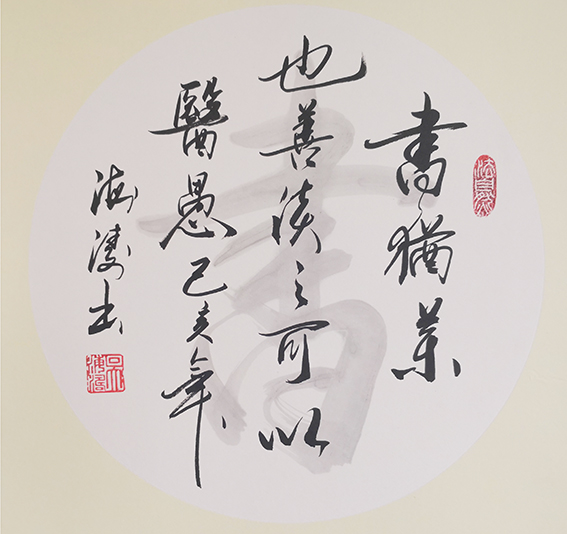 書猶藥
也善读之可以
醫愚己亥年
海涛书
書